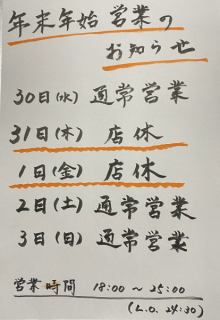 年末年始営業の
お知らせ
30日(水) 通常営業
31日(木) 店休
1日(金) 店休
2日(土) 通常営業
3日(日) 通常営業
営業時間 18:00〜25:00
(L.O. 24:30)